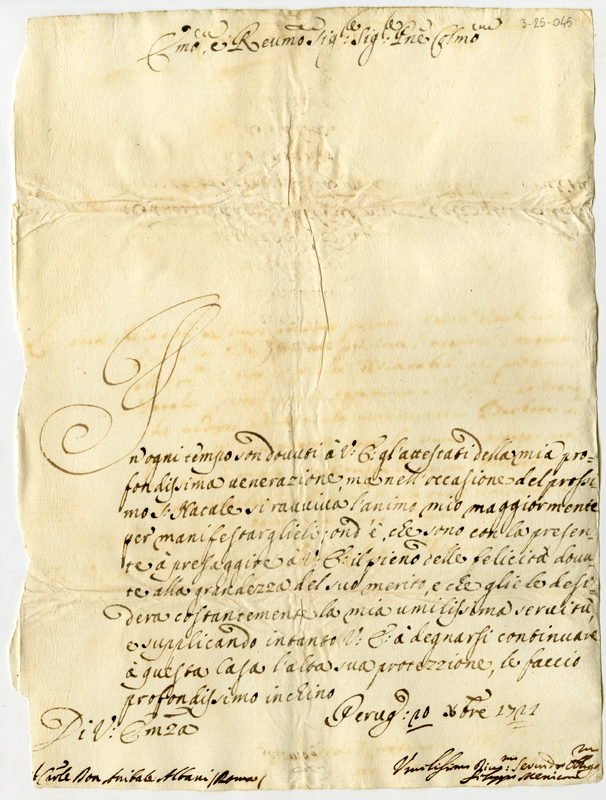 3-25-045
Em̃o, e Reum̃o Sig:re Sig:re Pñe Colm̃o
In ogni tempo son douuti à V: E: gl'attestati della mia pro=
fondissima uenerazione ma nell'occasione del prossi
mo S: Natale si rauuiua l'animo mio maggiormente
per manifestarglieli; ond'è, che sono con la presen
te à presaggire à V: E: il pieno delle felicità douu
te alla grandezza del suo merito, e che gliele desi
dera costantemente la mia umilissima seruitù,
e supplicando intanto V: E: à degnarsi continuare
à questa Casa l'alta sua protezzione, le faccio
profondissimo inchino
Di V: Em̃za
Perug: 20 Xbre 1721
Car:le Don Anibale Albani / Roma (
Vmilissimo Diu:mo Seruidor Oblig:mo
Filippo Meniconi